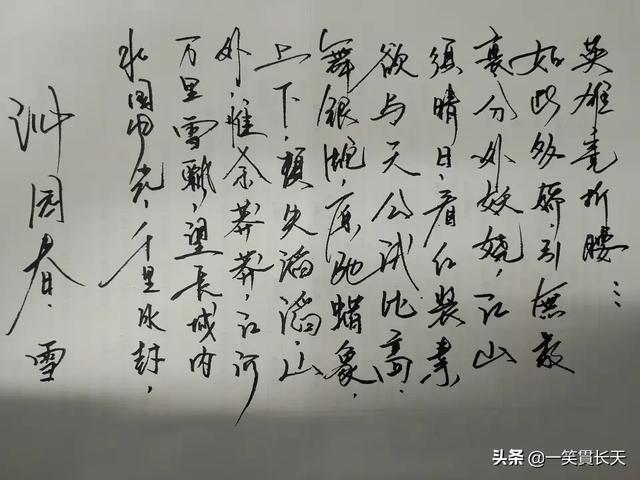 沁园春.雪
北国风光,千里冰封,
万里雪飘,望长城内
外,惟余莽莽,江河
上下,顿失滔滔,山
舞银蛇,原驰蜡象,
欲与天公试比高.
须晴日,看红装素
裹分外妖娆,江山
如此多娇,引無数
英雄竞折腰…
头条 @一笑貫长天